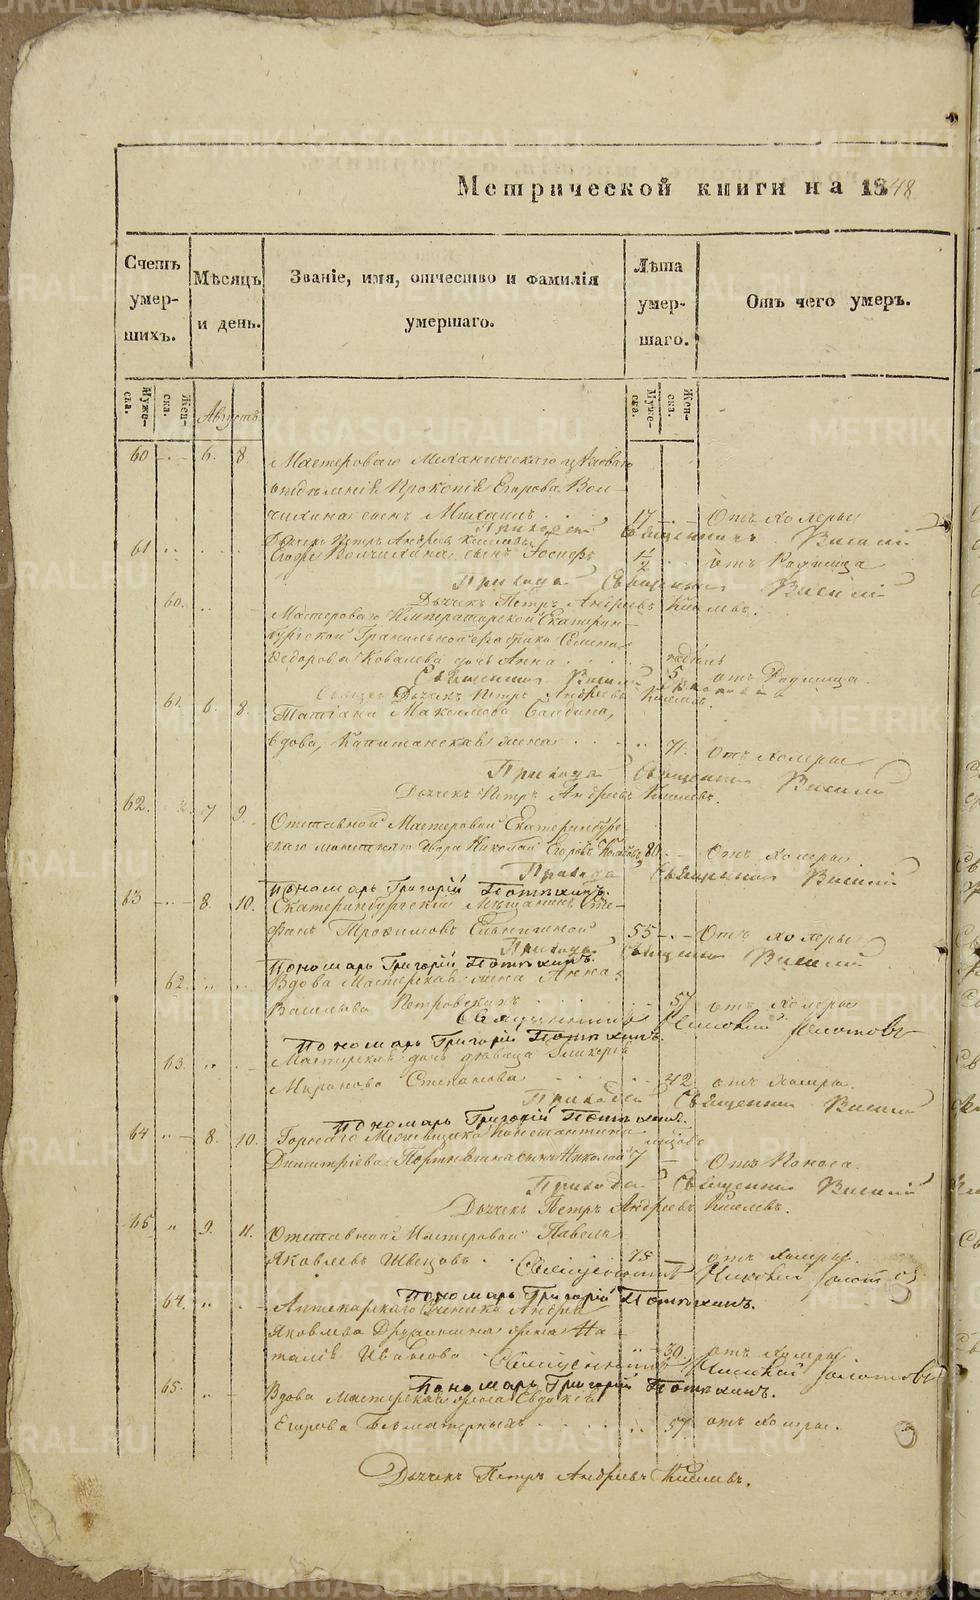 Метрической книги на 1848
Счетъ умер-шихъ.
Мѣсяцъ и день.
Званіе, имя, отчество и фамилія умершаго.
Лѣта умер-шаго.
Отъ чего умеръ.
Муже-ска.
Жен-ска.
Августъ
Муже-ска.
Жен-ска.
60 6. 8. Мастероваго Механическаго
отдѣленія Прокопія Егорова Вол-
чихина сынъ Михаилъ 17 Отъ холеры
Священникъ Василій
Дьячекъ Петръ Андреевъ Киселевъ
61 Егора Волчихина сынъ Іосифъ 1/2 отъ Родимца
Прихода Священникъ Василій
Дьячекъ Петръ Андреевъ Киселевъ.
60. Мастероваго Императорской Екатерин-
бургской Гранильной фабрики Семена
Федорова Ковалева дочь Анна недѣль 5 отъ Родимца.
Священникъ Василій
Дьячекъ Петръ Андреевъ Киселевъ.
61. 6. 8. Татіана Максимова
вдова, Капитанская жена 71. Отъ холеры
Прихода Священникъ Василій
Дьячекъ Петръ Андреевъ Киселевъ.
62. 7 9. Отставной Мастеровой Екатеринбург-
скаго монетнаго двора Николай Егоровъ 80. Отъ холеры.
Прихода Священникъ Василій
Пономарь Григорій Потѣхинъ.
63 8. 10. Екатеринбургскій Мѣщанинъ Сте-
фанъ Трофимовъ 55 Отъ холеры
Прихода Священникъ Василій
Пономарь Григорій Потѣхинъ.
62. Вдова Мастерская жена Анна
Васильева Петровскихъ 57 отъ холеры
Священникъ Николай Золотовъ
Пономарь Григорій Потѣхинъ.
63. Мастерская дочь дѣвица Гликерія
Миронова Степанова 42 отъ холеры.
Прихода Священникъ Василій
Пономарь Григорій Потѣхинъ.
64 8. 10. Горнаго Константина
Димитріева Портнягина сынъ Николай 7 Отъ Поноса.
Прихода Священникъ Василій
Дьячекъ Петръ Андреевъ Киселевъ.
65 9. 11. Отставной Мастеровой Павелъ
Яковлевъ Швецовъ 75 отъ холеры.
Священникъ Николай Золотовъ
Пономарь Григорій Потѣхинъ.
64. Аптекарскаго Ученика Андрея
Яковлева жена На-
талія Иванова 30. отъ холеры.
Священникъ Николай Золотовъ
Пономарь Григорій Потѣхинъ.
65. Вдова Мастерская жена Евдокія
Егорова Бѣломатерныхъ 57 отъ холеры.
Дьячекъ Петръ Андреевъ Киселевъ.
METRIKI.GASO-URAL.RU